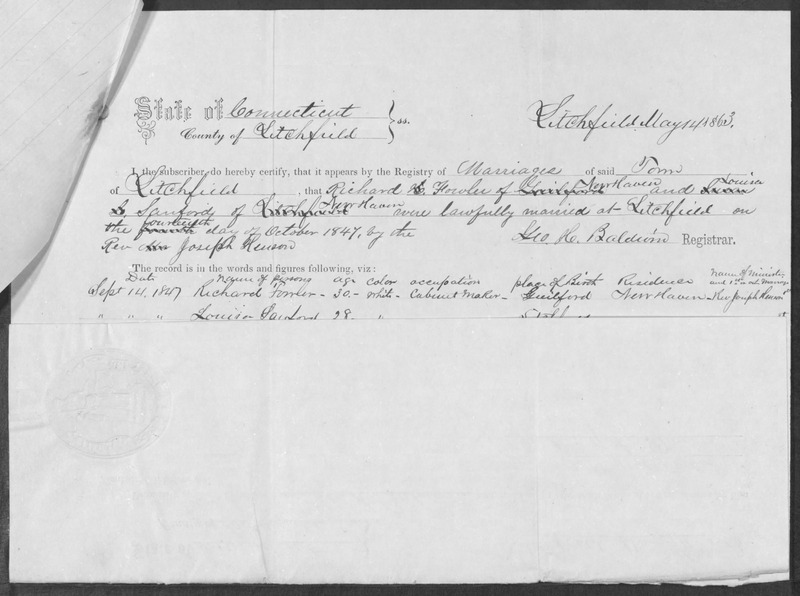 State of Connecticut } ss. Litchfield May 14 1863.
County of Litchfield
I, the subscriber, do hereby certify, that it appears by the Registry of Marriages of said Town
of Litchfield, that Richard Fowler of New Haven and Louisa
Sanford of New Haven were lawfully married at Litchfield on
the fourteenth day of October 1847, by the
Rev Joseph Henson Geo. H. Baldwin Registrar.
The record is in the words and figures following, viz:
Date Name of persons age color occupation place of Birth Residence Name of Minister
Sept 14. 1847 Richard Fowler - 30. - White - Cabinet Maker - Guilford New Haven - Rev Joseph Henson
" " " Louisa Sanford 28. "